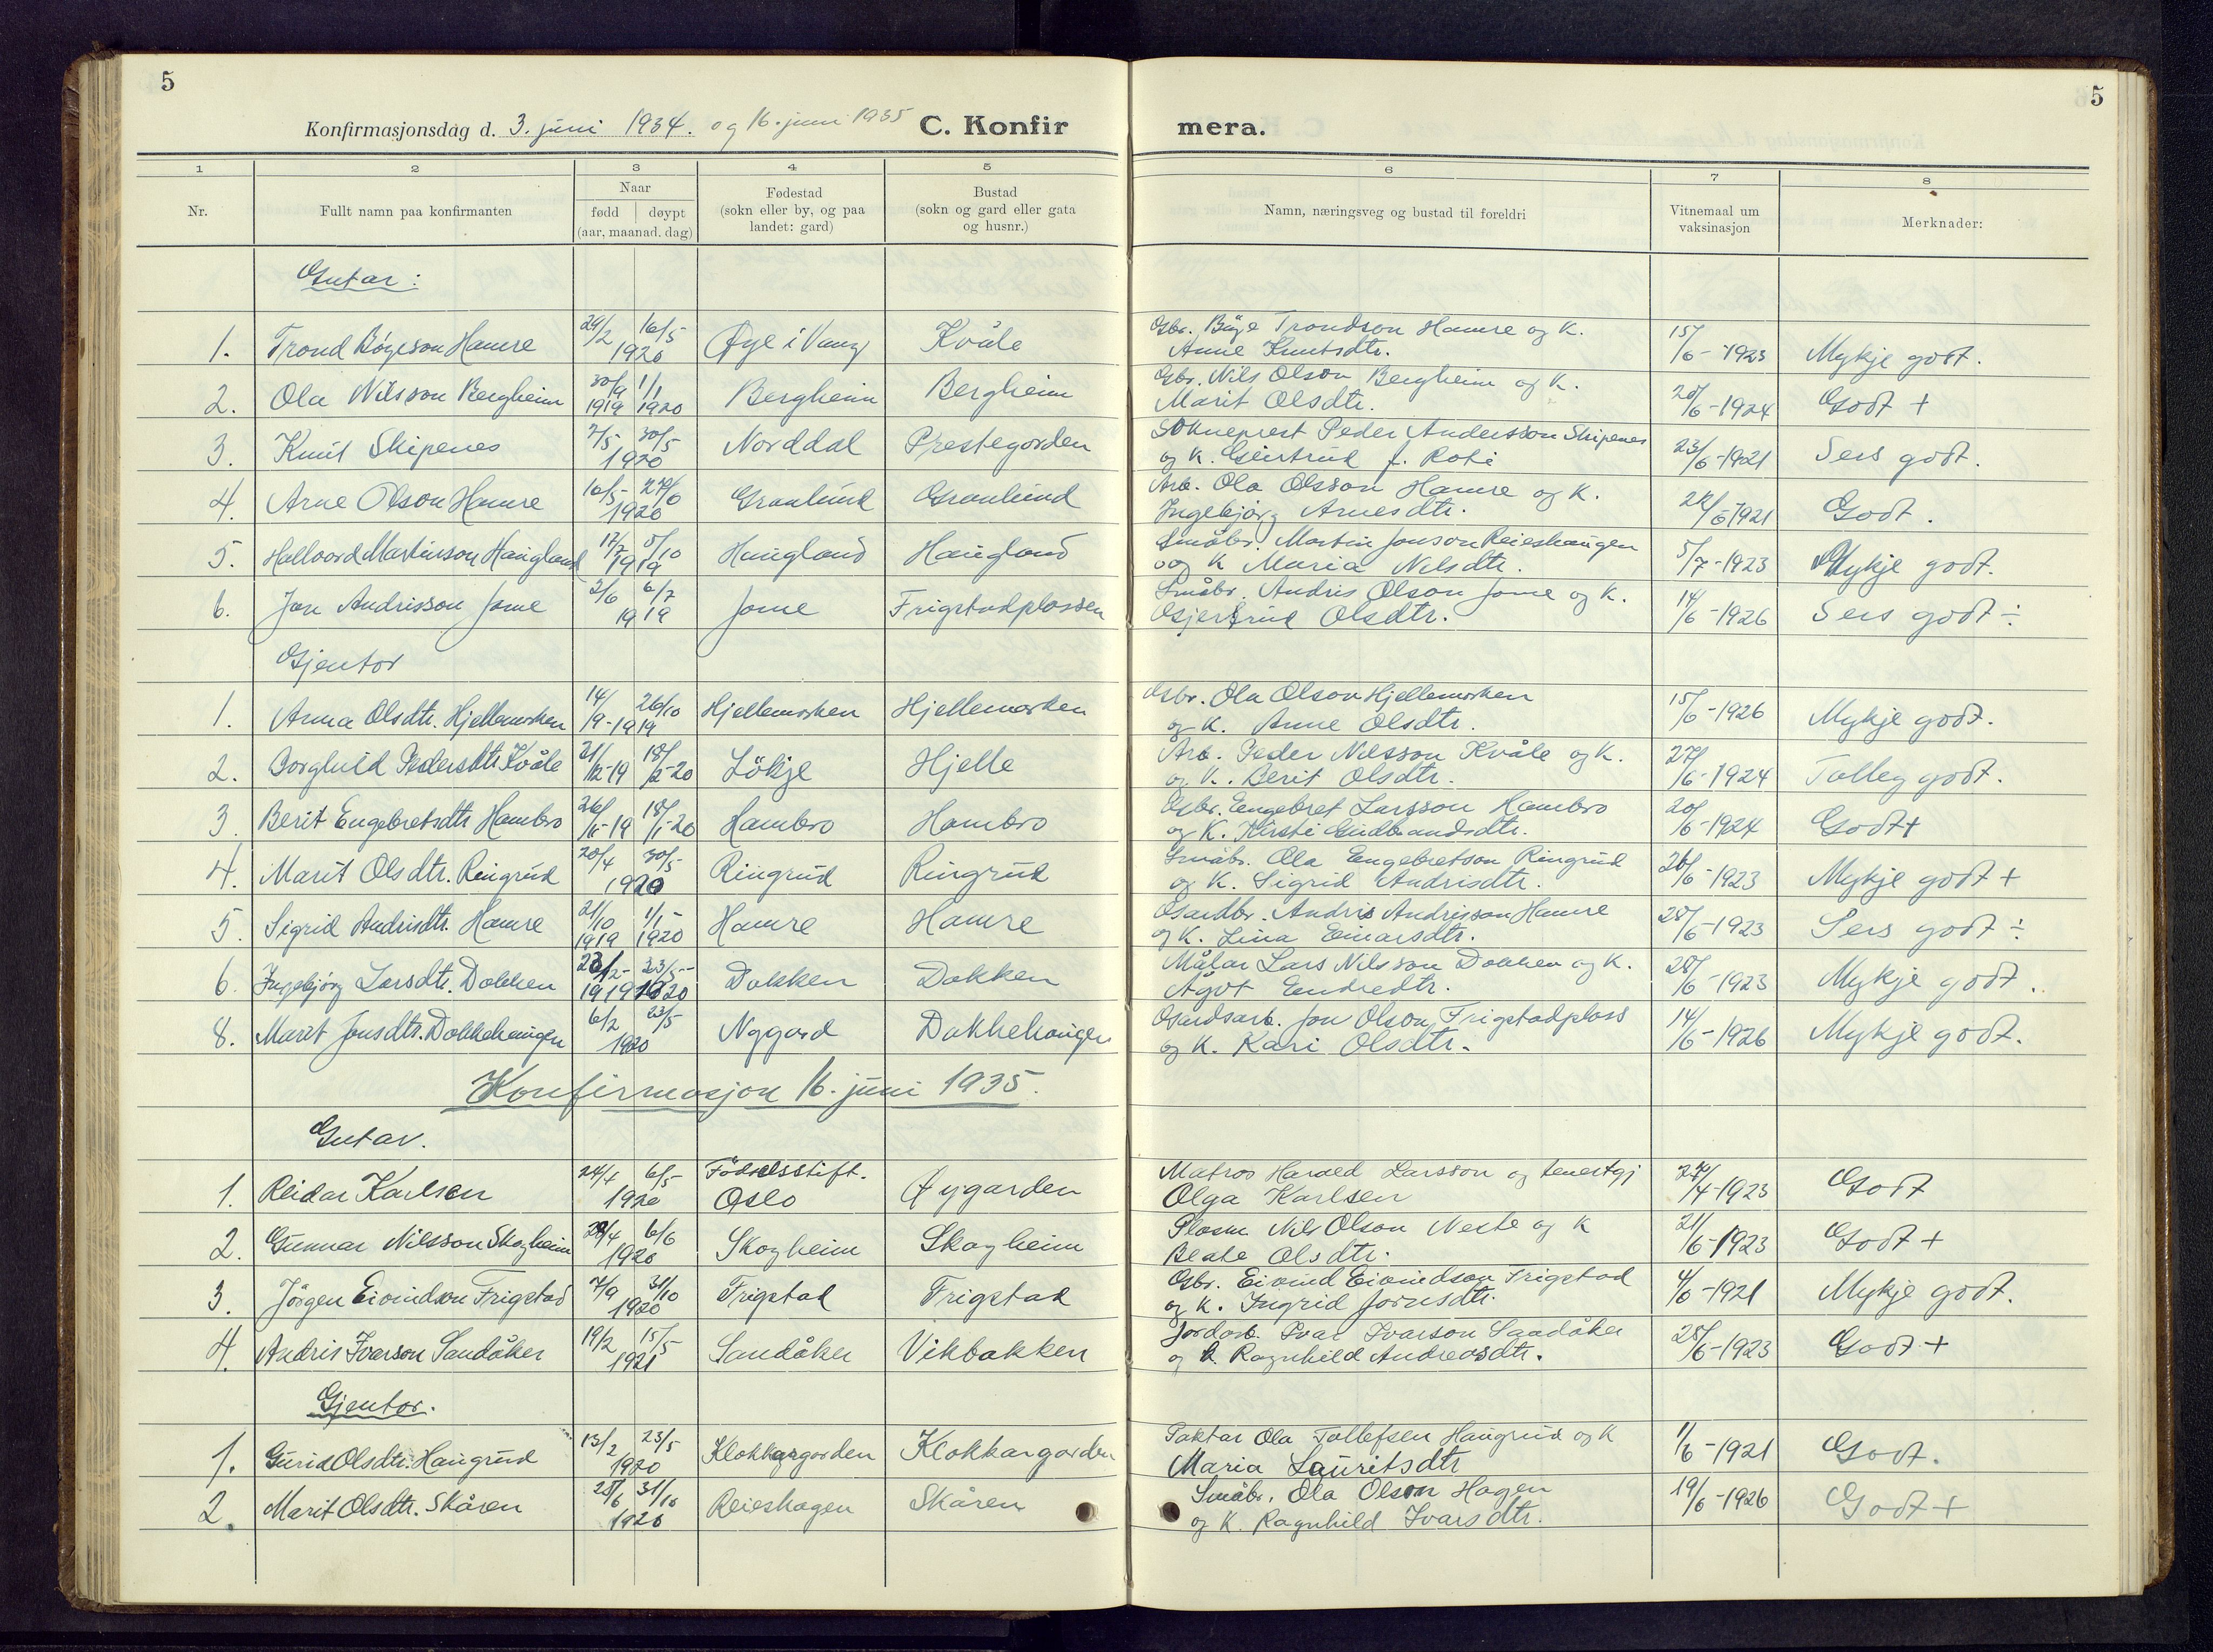 5
5
Konfirmasjonsdag d. 3. juni 1934. og 16. juni 1935
C. Konfir
mera.
1 2 3 4 5 6 7 8
Nr.
Fullt namn paa konfirmanten
Naar
fødd | døypt
(aar, maanad, dag)
Fødestad
(sokn eller by, og paa
landet: gard)
Bustad
(sokn og gard eller gata
og husnr.)
Namn, næringsveg og bustad til foreldri
Vitnemaal um
vaksinasjon
Merknader:
Gutar:
1. Trond Bøyeson Hamre 29/2 16/5 1920 Øye i Vang Kvåle Gbr. Bøye Trondson Hamre og K. Anne Knutsdtr. 15/6-1923 Mykje godt.
2. Ola Nilsson Bergheim 30/9 1919 1/1 1920 Bergheim Bergheim Gbr. Nils Olson Bergheim og K. Marit Olsdtr. 20/6-1924 Godt +
3. Knut Skipenes 7/5 30/5 1920 Norddal Prestegorden Sokneprest Peder Andersson Skipenes og K. Geirtrud f. Roti 23/6-1921 Sers godt.
4. Arne Olson Hamre 16/5 27/6 1920 Granlund Granlund Arb. Ola Olsson Hamre og K. Ingebjørg Arnesdtr. 22/6-1921 Godt.
5. Hallvord Martinson Haugland 17/7 5/10 1919 Haugland Haugland Småbr. Martin Jonson Reieshaugen og K Maria Nilsdtr. 5/7-1923 Mykje godt.
6. Jon Andrisson Jome 2/6 6/7 1919 Jome Frigstadplassen Småbr. Andris Olson Jome og K. Gjertrud Olsdtr. 14/6-1926 Sers godt ÷
Gjentor
1. Anna Olsdtr. Hjellemorken 14/9-1919 26/10 Hjellemorken Hjellemorken Gbr. Ola Olson Hjellemorken og K. Anne Olsdtr. 15/6-1926 Mykje godt.
2. Borghild Pedersdtr Kvåle 21/12-19 18/2-20 Lökje Hjelle Arb. Peder Nilsson Kvåle og K. og K. Berit Olsdtr. 27/6-1924 Tolleg godt.
3. Berit Engebretsdtr Hambro 26/11-19 18/1-20 Hambro Hambro Gbr. Engebret Larsson Hambro og K. Kirsti Gudbrandsdtr. 20/6-1924 Godt+
4. Marit Olsdtr. Ringrud 20/4 30/5 1920 Ringrud Ringrud Småbr. Ola Engebretson Ringrud og K. Sigrid Andrisdtr. 26/6-1923 Mykje godt +
5. Sigrid Andrisdtr. Hamre 21/10 1919 1/1 1920 Hamre Hamre Gardbr. Andris Andrisson Hamre og K. Lina Einarsdtr. 28/6-1923 Sers godt ÷
6. Ingebjørg Larsdtr. Dokken 23/12 1919 23/5 1920 Dokken Dokken Målar Lars Nilsson Dokken og K. Ågot Endredtr. 28/6-1923 Mykje godt.
8. Marit Jonsdtr. Dokkehaugen 6/2 23/5 1920 Nygard Dokkehaugen Gardsarb. Jon Olson Frigstadplass og K. Kari Olsdtr. 14/6-1926 Mykje godt.
Konfirmasjon 16. juni 1935.
Gutar.
1. Reidar Karlsen 24/4 6/5 1920 Födselsstift. Oslo Øygarden Matros Harald Larsson og tenestgj Olga Karlsen 27/4-1923 Godt
2. Gunnar Nilsson Skogheim 28/4 6/6 1920 Skogheim Skogheim Plassm Nils Olson Neste og K Beate Olsdtr. 21/6-1923 Godt +
3. Jörgen Eivindson Frigstad 7/9 31/10 1920 Frigstad Frigstad Gbr. Eivind Eivindson Frigstad og K. Ingrid Jörnsdtr. 4/6-1921 Mykje godt.
4. Andris Ivarson Sandåker 19/2 15/5 1921 Sandåker Vikbakken Jordarb. Ivar Ivarson Sandåker og K. Ragnhild Andreasdtr. 28/6-1923 Godt +
Gjentor.
1. Gurid Olsdtr. Haugrud 13/2 23/5 1920 Klokkargorden Klokkargorden Paktar Ola Tollefsen Haugrud og K Maria Lauritsdtr 1/6-1921 Godt.
2. Marit Olsdtr. Skåren 28/6 31/10 1920 Reieshagen Skåren Småbr. Ola Olson Hagen og K. Ragnhild Ivarsdtr. 19/6-1926 Godt+